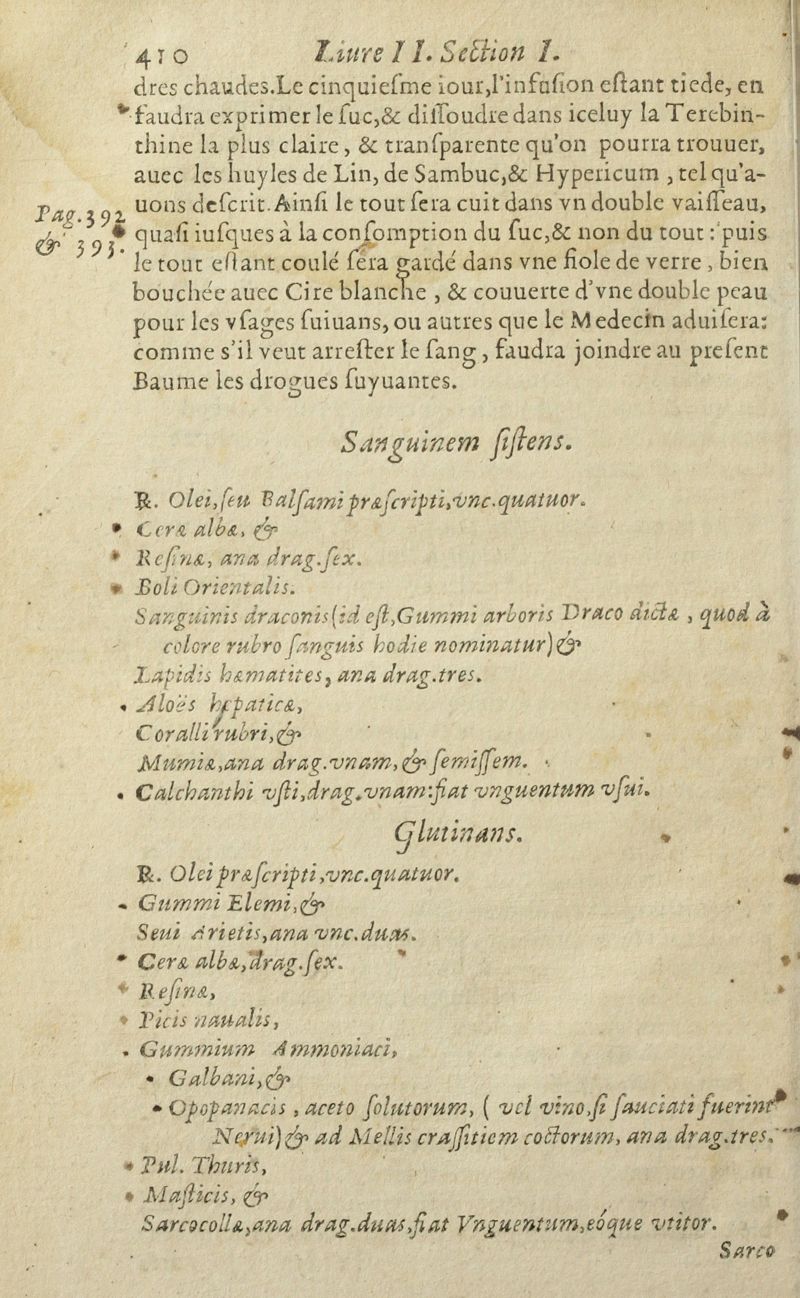 410 Liure II. Section I.
dres chaudes.Le cinquiesme iour,l'infusion estant tiede, en
faudra exprimer le suc,& dissoudre dans iceluy la Terebin-
thine la plus claire, & transparente qu'on pourra trouuer,
auec les huyles de Lin, de Sambuc,& Hypericum , tel qu'a-
Pag.392
& 393.
uons descrit. Ainsi le tout sera cuit dans vn double vaisseau,
quasi iusques à la consomption du suc,& non du tout : puis
le tout estant coulé sera gardé dans vne fiole de verre , bien
bouchée auec Cire blanche , & couuerte d'vne double peau
pour les vsages suiuans, ou autres que le Medecin aduisera:
comme s'il veut arrester le sang , faudra joindre au present
Baume les drogues suyuantes.
Sanguinem sistens.
℞. Olei,seu Balsami præscripti,vnc.quatuor.
Ceræ albæ, &
Resinæ, ana drag.sex.
Boli Orientalis.
Sanguinis draconis(id est,Gummi arboris Draco dictæ , quod à
colore rubro sanguis hodie nominatur)&
Lapidis hæmatites, ana drag.tres.
Aloës hepaticæ,
Coralli rubri,&
Mumiæ,ana drag.vnam,& semissem.
Calchanthi vsti,drag.vnam:fiat vnguentum vsui.
Glutinans.
℞. Olei præscripti,vnc.quatuor.
Gummi Elemi,&
Seui Arietis,ana vnc.duas.
Ceræ albæ,drag.sex.
Resinæ,
Picis naualis,
Gummium Ammoniaci,
Galbani,&
Opopanacis , aceto solutorum, ( vel vino,si sauciati fuerint
Nerui)& ad Mellis crassitiem coctorum, ana drag.tres.
Pul. Thuris,
Mastichis, &
Sarcocollæ,ana drag.duas,fiat Vnguentum,eóque vtitor.
Sarco